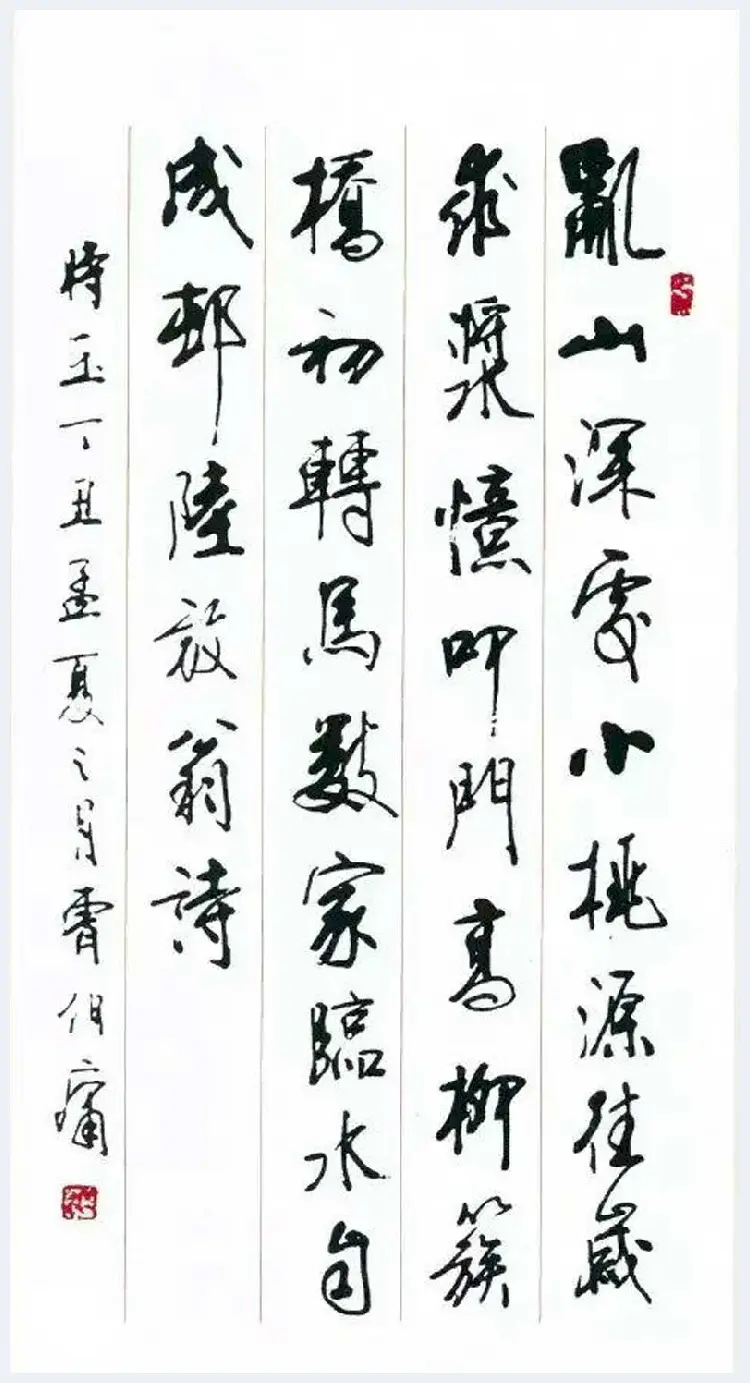 亂山深處小桃源往歲
求漿憶叩門高柳簇
橋初轉馬數家臨水自
成邨陸放翁詩
時在丁丑孟夏之月曹伯庸